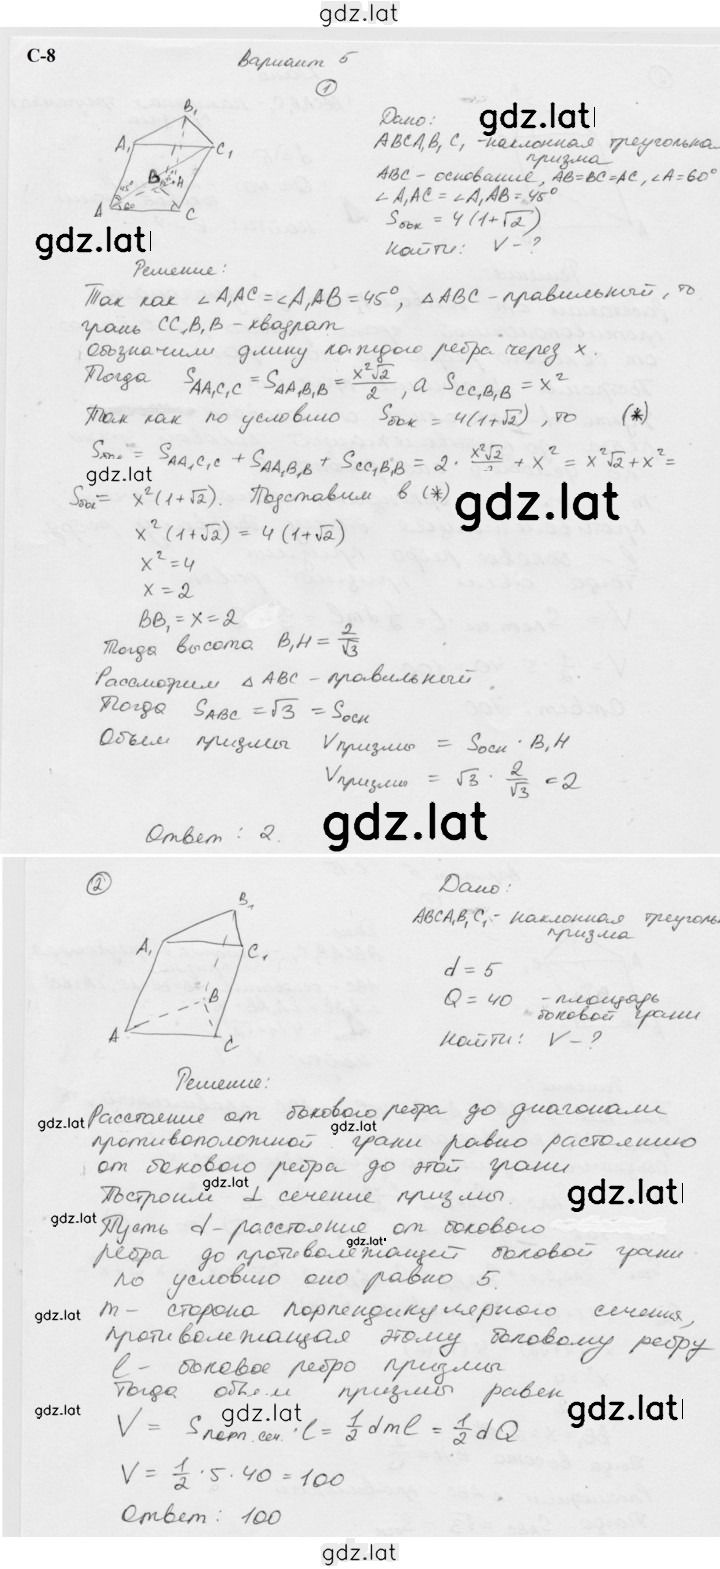 gdz.lat
С-8
Вариант 5
1
gdz.lat
Дано:
ABCA₁B₁C₁ - наклонная треугольна
призма
ABC - основание, AB=BC=AC, ∠A=60°
∠A₁AC = ∠A₁AB = 45°
Sбок = 4(1+√2)
Найти: V - ?
B₁
A₁
C₁
B
H
45°
60
A
C
gdz.lat
Решение:
Так как ∠A₁AC = ∠A₁AB = 45°, △ABC - правильный, то
грань CC₁B₁B - квадрат
Обозначили длину каждого ребра через x.
Тогда S_AA₁C₁C = S_AA₁B₁B = x²√2/2, а S_CC₁B₁B = x²
Так как по условию Sбок = 4(1+√2), то (*)
Sбок = S_AA₁C₁C + S_AA₁B₁B + S_CC₁B₁B = 2 · x²√2/2 + x² = x²√2 + x² =
gdz.lat
Sбок = x²(1+√2). Подставим в (*)
gdz.lat
x²(1+√2) = 4(1+√2)
x² = 4
x = 2
BB₁ = x = 2
Тогда высота B₁H = 2/√3
Рассмотрим △ABC - правильный
Тогда S_ABC = √3 = Sосн
Объем призмы Vпризмы = Sосн · B₁H
Vпризмы = √3 · 2/√3 = 2
Ответ: 2.
gdz.lat
2
Дано:
ABCA₁B₁C₁ - наклонная треуголь
призма
d = 5
Q = 40 - площадь
боковой грани
Найти: V - ?
B₁
A₁
C₁
B
A
C
Решение:
gdz.lat
Расстояние от бокового ребра до диагонали
противоположной грани равно растоянию
gdz.lat
от бокового ребра до этой грани
gdz.lat
Построим ⊥ сечение призмы.
gdz.lat
gdz.lat
Пусть d - расстояние от бокового
gdz.lat
ребра до противолежащей боковой грани
по условию оно равно 5.
gdz.lat
m - сторона перпендикулярного сечения,
gdz.lat
противолежащая этому боковому ребру
l - боковое ребро призмы
Тогда объем призмы равен
gdz.lat
gdz.lat
gdz.lat
V = Sперп.сеч. · l = 1/2 dml = 1/2 dQ
V = 1/2 · 5 · 40 = 100
Ответ: 100
gdz.lat